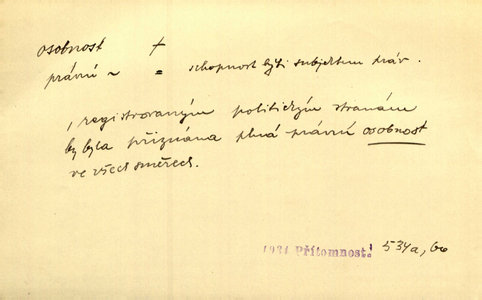 osobnost +
právní ~ = schopnost býti subjektem práv.
, registrovaným politickým stranám
by byla přiznána plná právní osobnost
ve všech směrech.
1931 Přítomnost! 534a,